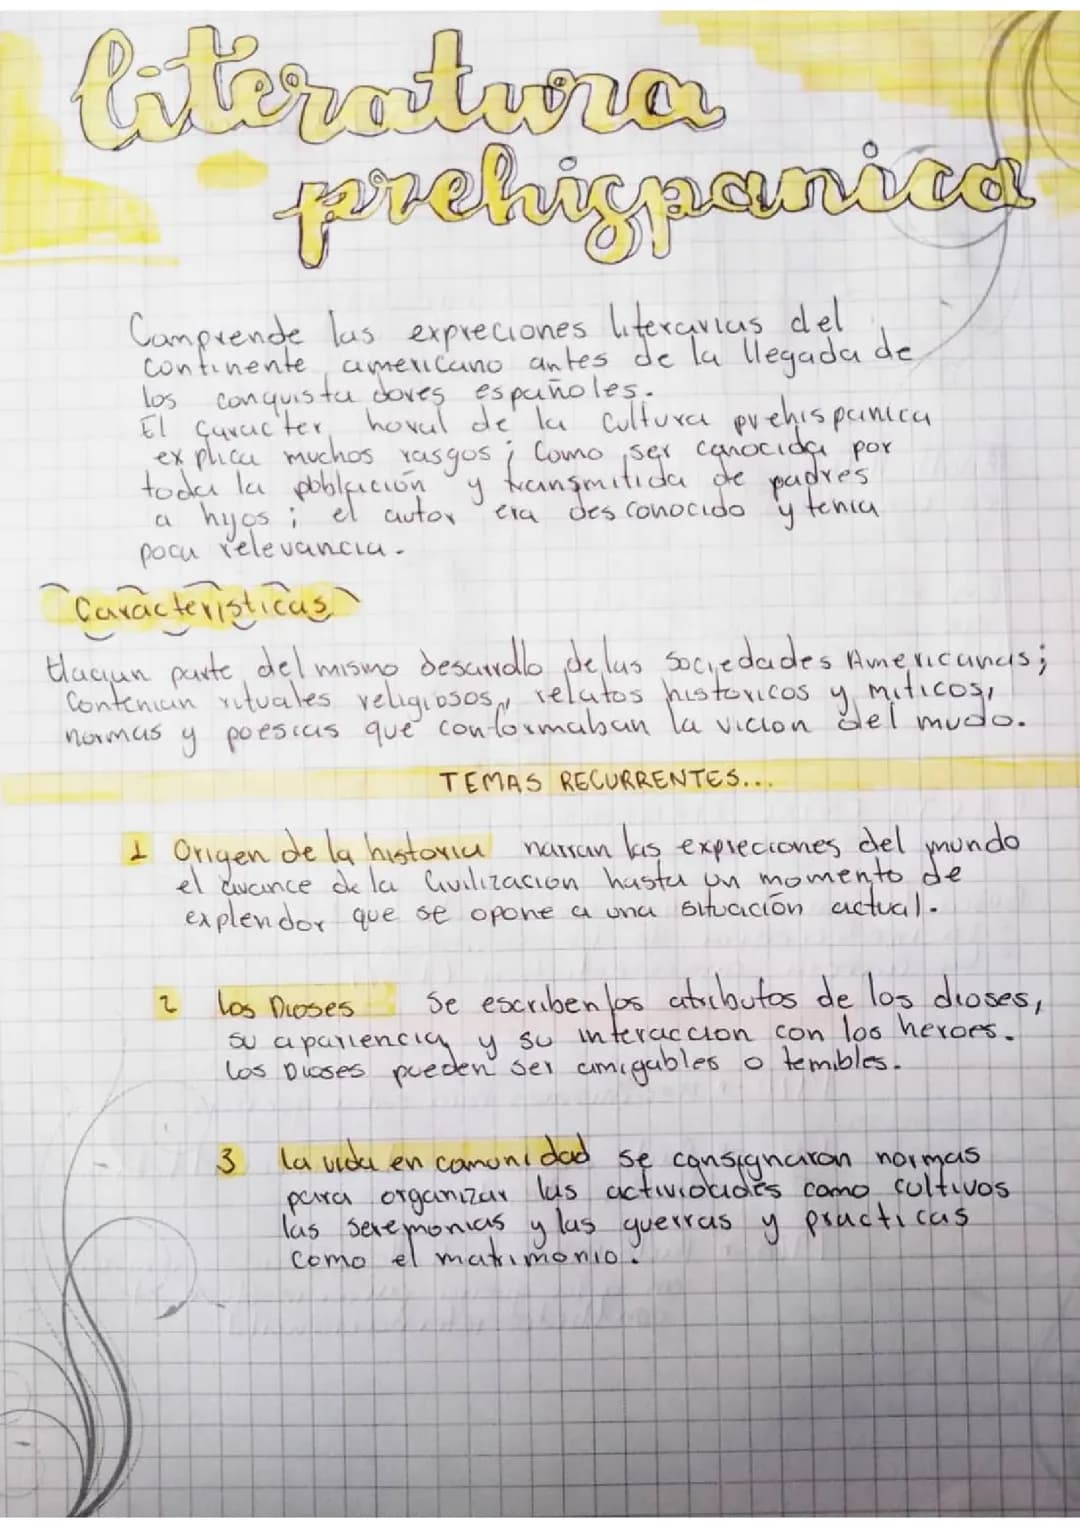 literatura
prehispanica
Comprende las expreciones literarias del
continente americano antes de la llegada de
los conquistadores españoles.
El caracter horal de la cultura prehispanica
explica muchos rasgos; Como ser conocida por
toda la población y transmitida de padres
a hijos; el autor era desconocido y tenia
poca relevancia.
Caracteristicas
Hacian parte del mismo desarrollo delas Sociedades Americanas;
Contenian rituales religiosos, relatos historicos y miticos,
normas y poesias que conformaban la vicion del mudo.
TEMAS RECURRENTES...
1 Origen de la historia narran las expreciones del mundo
el avance de la Civilizacion hasta un momento de
explendor que se opone a una situación actual.
2 Los Dioses Se escriben los atributos de los dioses,
su apariencia y su interaccion con los heroes.
Los Dioses pueden ser amigables o temibles.
3 La vida en comunidad se consignaron normas
para organizar las actividades como cultivos
las seremonias y las guerras y practicas
como el matrimonio.